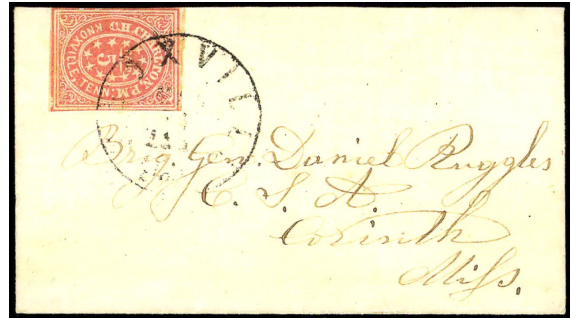 C.H. CHARLTON P.M. KNOXVILLE TENN.
5
OXVILL
Brig. Gen. Daniel Ruggles
C. S. A.
Corinth
Miss.